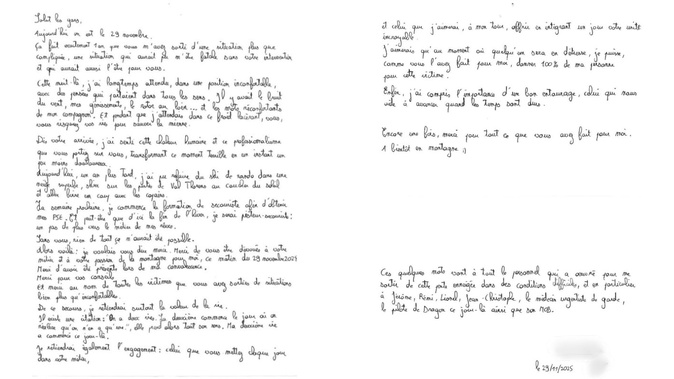 Salut les gars,
Aujourd'hui on est le 29 novembre.
Ça fait maintenant 1 an que vous m'avez sorti d'une situation plus que
compliquée, une situation qui aurait pu m'être fatale sans votre intervention
et qui aurait aussi l'être pour vous.
Cette nuit-là, j'ai longtemps attendu, dans une position inconfortable,
avec des pensées qui partaient dans tous les sens. Il y avait le bruit
du vent, mes gémissements, le rotor au loin... et les mots réconfortants
de mon compagnon. Et pendant que j'attendais dans ce froid glacial, vous,
vous risquiez vos vies pour sauver la mienne.
Dès votre arrivée, j'ai senti cette chaleur humaine et ce professionnalisme
que vous portez sur vous, transformant ce moment terrible en un instant un
peu moins douloureux.
Aujourd'hui, un an plus tard, j'ai pu refaire du ski de rando dans une
neige, skier sur les pistes de Val Thorens au coucher du soleil
et aller boire un coup avec les copains.
La semaine prochaine, je commence la formation de secouriste afin d'obtenir
mes PSE. Et peut-être que d'ici la fin de l'hiver, je serai pisteur-secouriste :
un pas de plus vers le métier de mes rêves.
Sans vous, rien de tout ça n'aurait été possible.
Alors voilà : je voulais vous dire merci. Merci de vous être dévoués à votre
métier et à votre passion de la montagne pour moi, ce matin du 29 novembre
Merci d'avoir été présents lors de ma convalescence,
Merci pour vos conseils
Et merci au nom de toutes les victimes que vous avez sorties de situations
bien plus qu'inconfortables.
De ce secours, je retiendrai surtout la valeur de la vie.
Il existe une citation : "On a deux vies. La deuxième commence le jour où on
réalise qu'on n'en a qu'une", elle prend alors tout son sens. Ma deuxième vie
a commencé ce jour-là.
Je retiendrai également l'engagement : celui que vous mettez chaque jour
dans votre métier,
et celui que j'aimerai, à mon tour, offrir en intégrant un jour votre unité
incroyable.
J'aimerais qu'au moment où quelqu'un sera en détresse, je puisse,
comme vous l'avez fait pour moi, donner 100% de ma personne
pour cette victime.
Enfin, j'ai compris l'importance d'un bon entourage, celui qui nous
aide à avancer quand les temps sont durs.
Encore une fois, merci pour tout ce que vous avez fait pour moi.
À bientôt en montagne :)
Ces quelques mots vont à tout le personnel qui a œuvré pour me
sortir de cette pente enneigée dans des conditions difficiles, et en particulier
à Jérôme, Rémi, Lionel, Jean-Christophe, le médecin urgentiste de garde,
le pilote de Dragon ce jour-là ainsi que son MOB.
le 29/11/2025